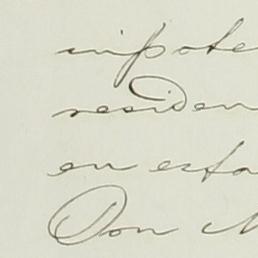 impote
residen
en esta
Don M